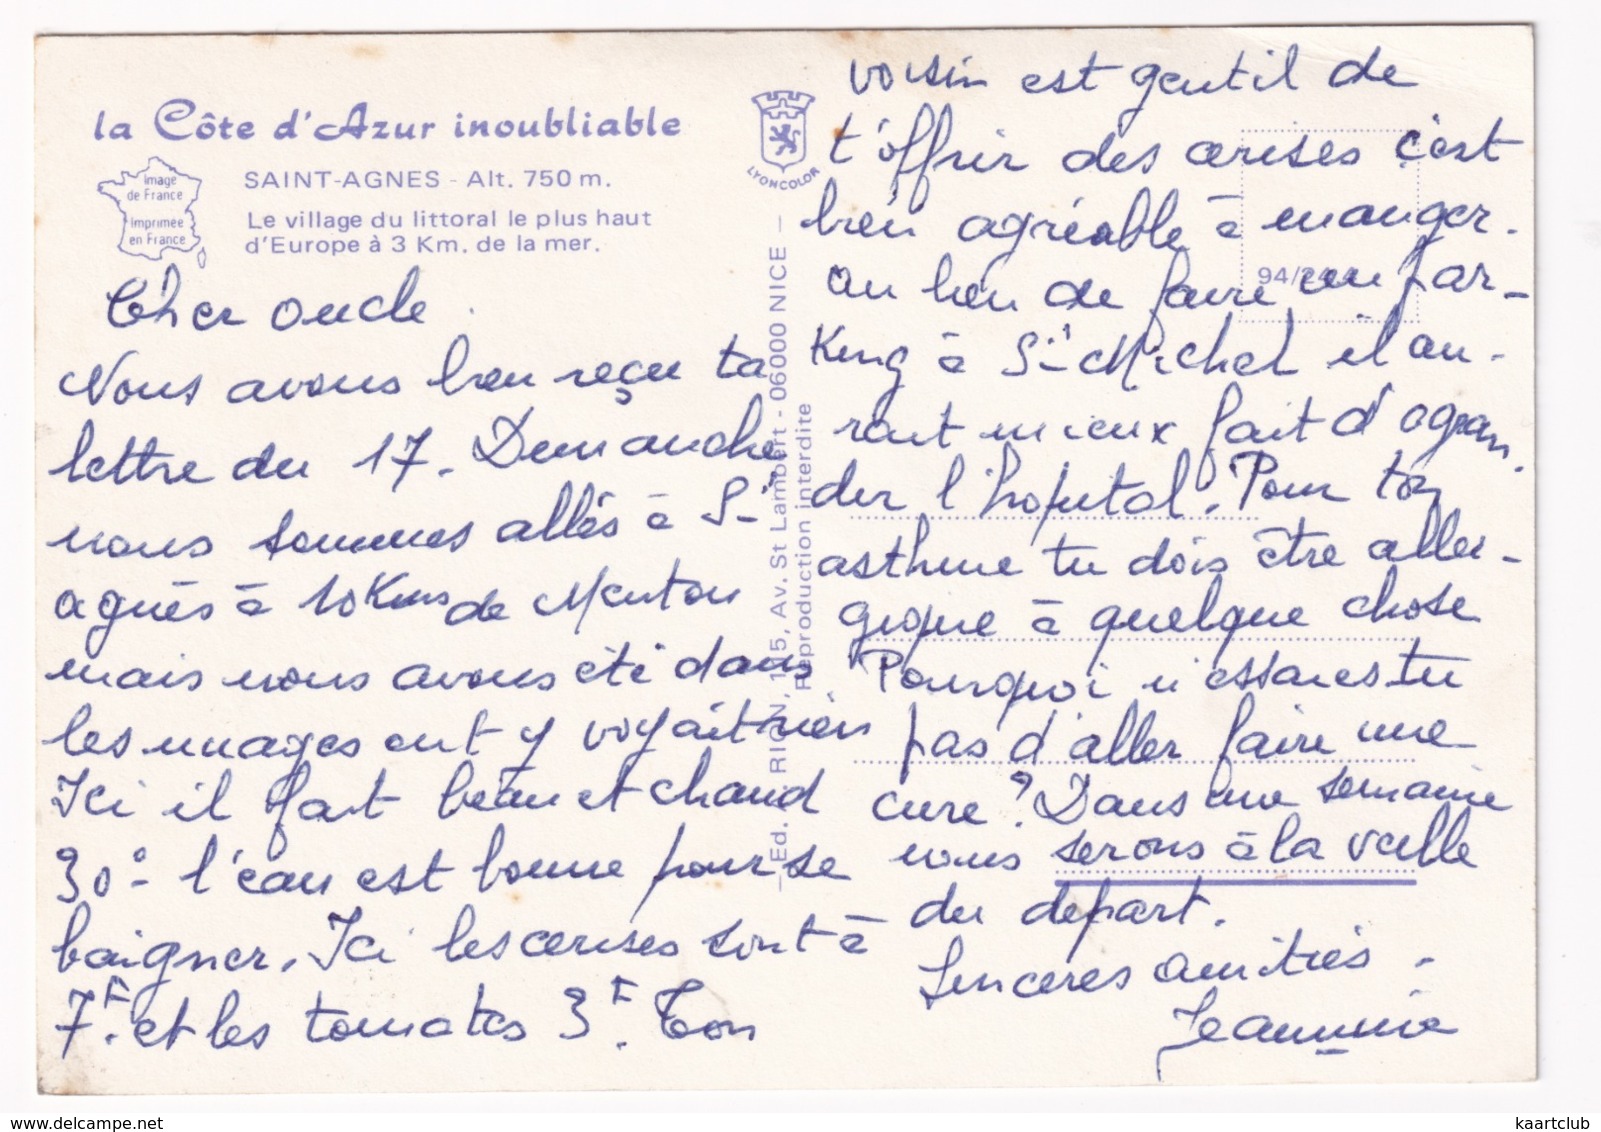 la Côte d'Azur inoubliable
Image
de France
Imprimée
en France
SAINT-AGNES - Alt. 750 m.
Le village du littoral le plus haut
d'Europe à 3 Km. de la mer.
Cher oncle.
Nous avons bien reçu ta
lettre du 17. Dimanche
nous sommes allés à St
agnès à 10 Kms de Menton
mais nous avons été dans
les nuages ont y voyait rien
Ici il fait beau et chaud
30° - l'eau est bonne pour se
baigner. Ici les cerises sont à
7F. et les tomates 3F. Ton
LYONCOLOR
Ed. RION, 115, Av. St Lambert - 06000 NICE -
Reproduction interdite
94/
voisin est gentil de
t'offrir des cerises c'est
bien agréable à manger.
au lieu de faire un par-
King à St Michel il au-
rait mieux fait d'agran-
dir l'hopital. Pour ton
asthme tu dois être aller-
gique à quelque chose
Pourquoi n'essaies tu
pas d'aller faire une
cure? Dans une semaine
nous serons à la veille
du depart.
Sinceres amitiés.
Jeannine
delcampe.net
kaartclub